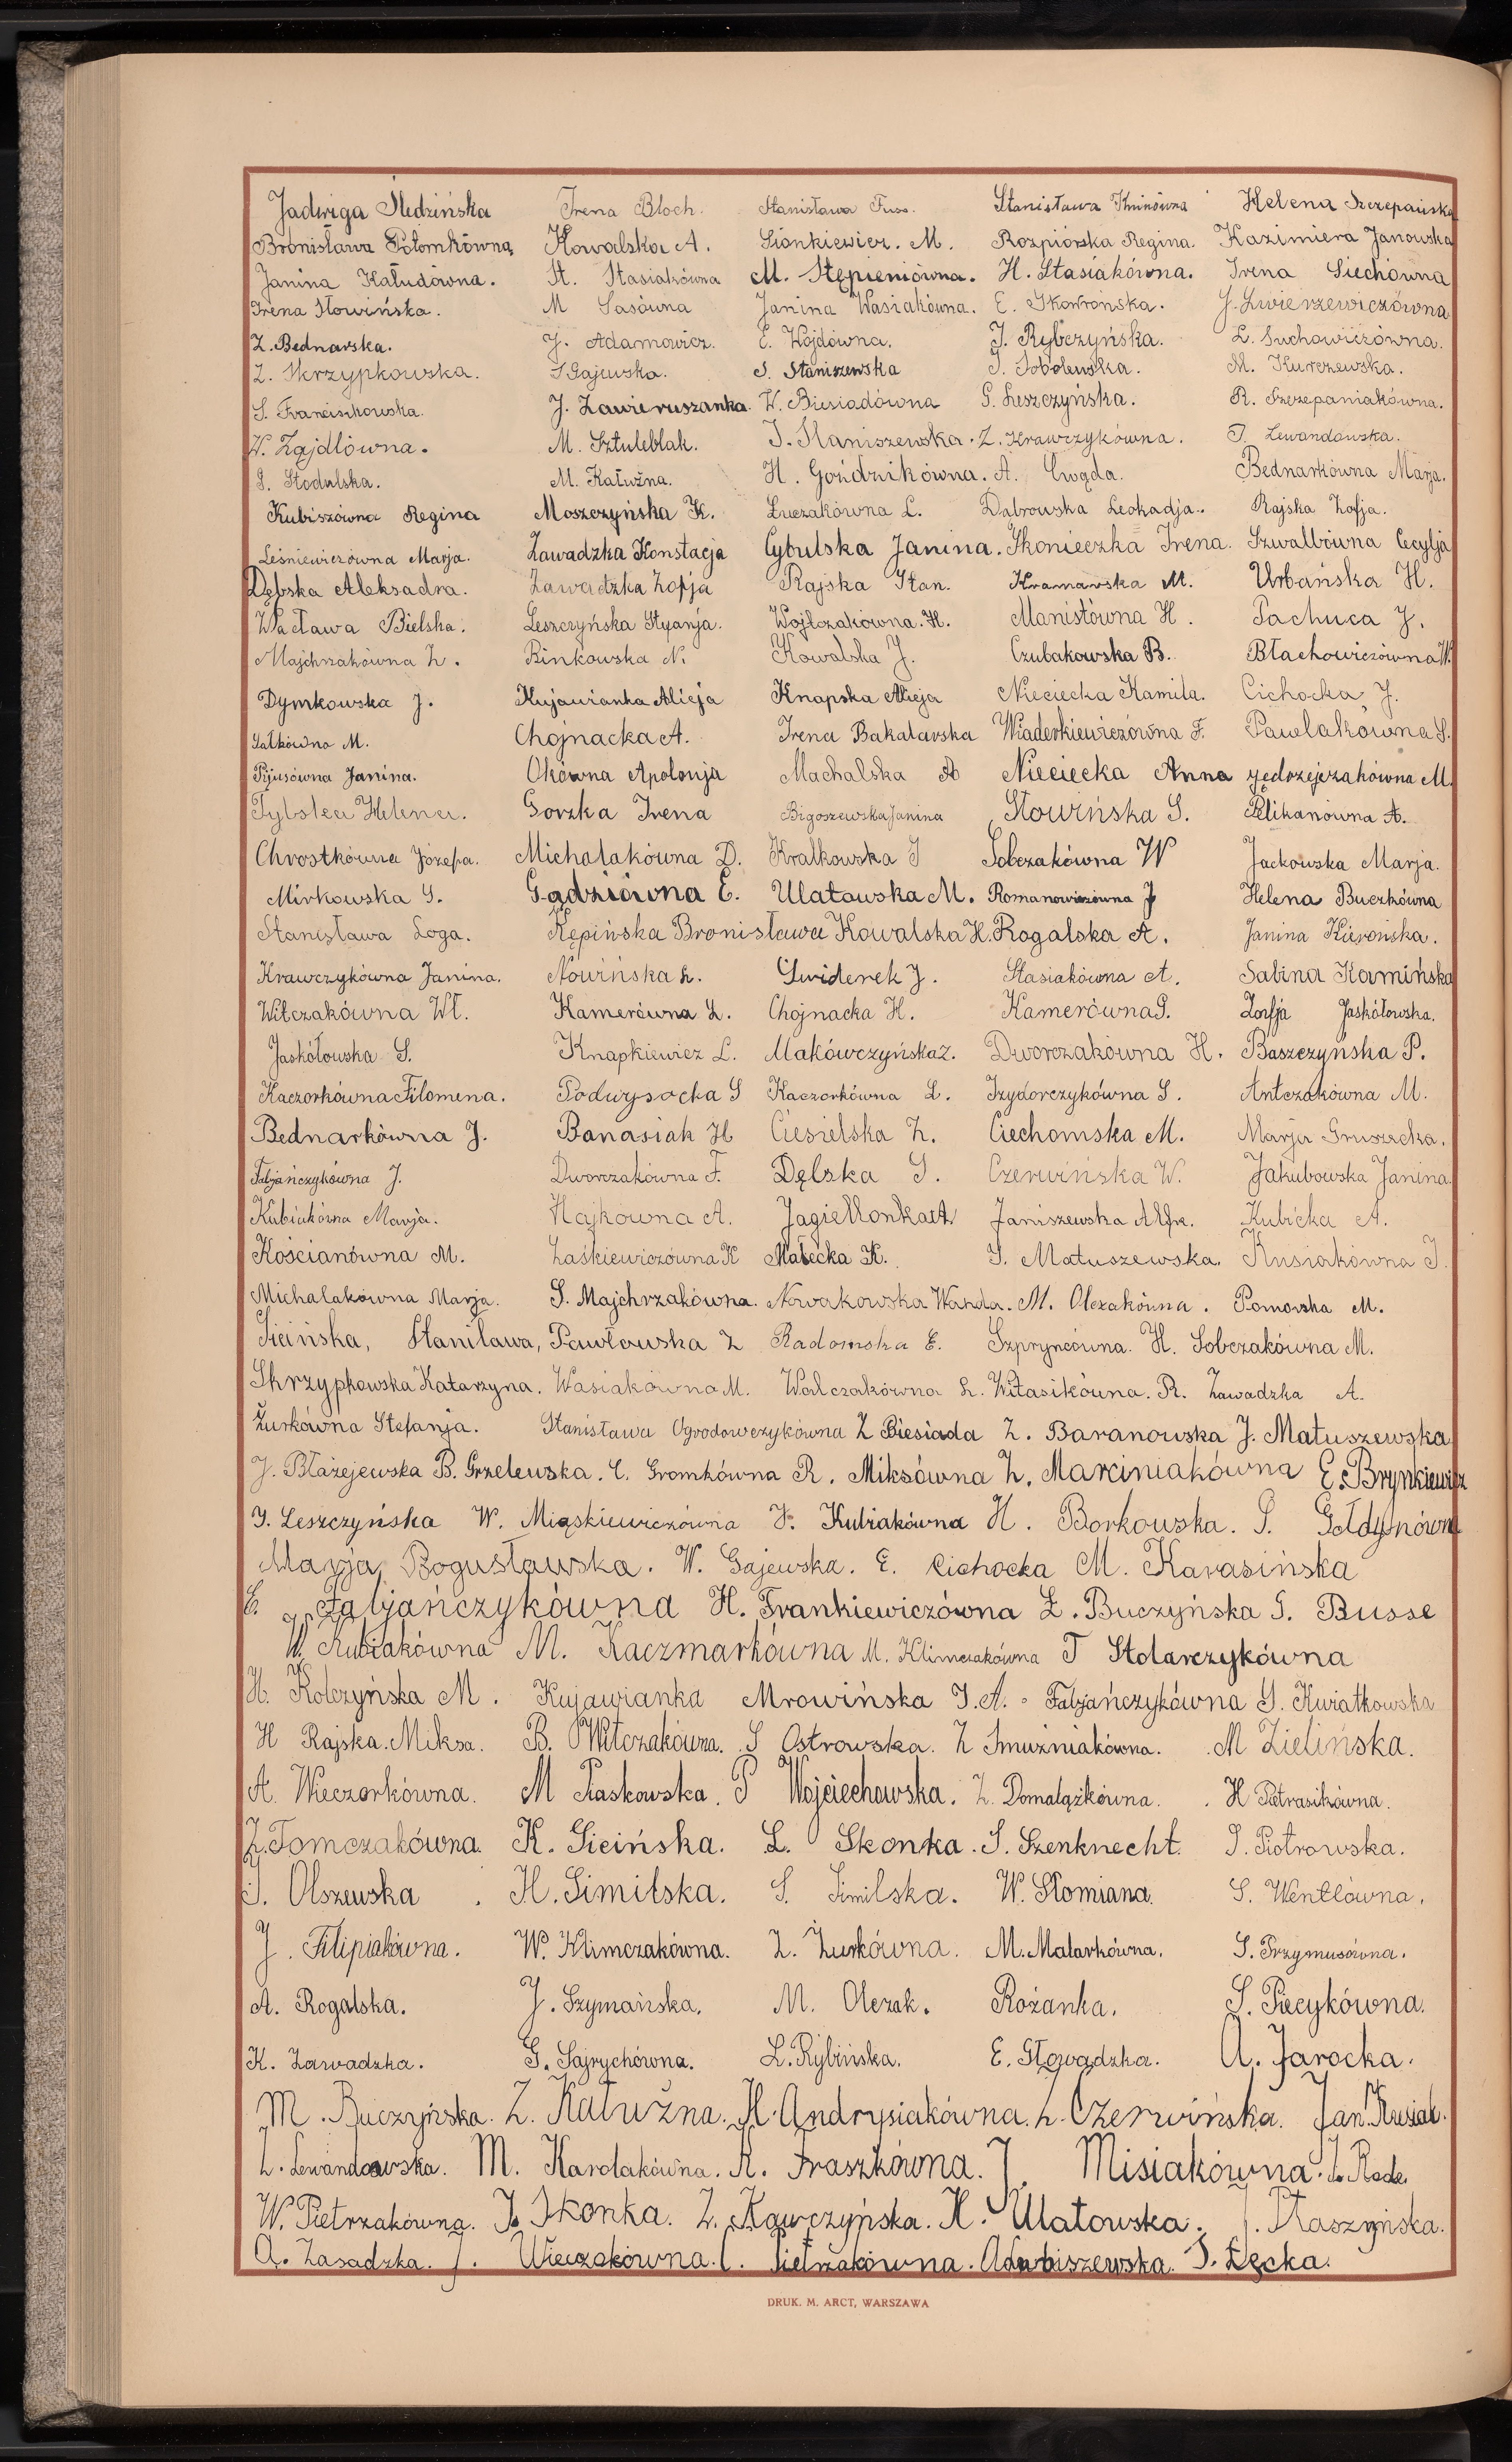 Jadwiga Śledzińska Irena Bloch. Stanisława Fuss. Stanisława Kminówna Helena Szczepańska
Bronisława Potomkówna Kowalska A. Sionkiewicz. M. Rozpiórska Regina. Kazimiera Janowska
Janina Kałudówna. St. Stasiakówna M. Stępieniówna. H. Stasiakówna. Irena Siechówna
Irena Słowińska. M Sasówna Janina Wasiakówna. E. Skowrońska. J. Zwierzewiczówna
Z. Bednarska. J. Adamowicz. E. Wójdówna. J. Rybczyńska. L. Suchowiczówna.
Z. Skrzypkowska. S Gajewska. S. Staniszewska J. Sobolewska. M. Kurczewska.
S. Franciszkowska. J. Zawieruszanka. W. Biesiadówna G. Leszczyńska. R. Szczepaniakówna.
W. Zajdlówna. M. Sztuleblak. J. Staniszewska. Z. Krawczykówna. J. Lewandowska.
S. Stodulska. M. Kałużna. H. Goździkówna. A. Cwąda. Bednarkówna Marja.
Kubiszówna Regina Moszczyńska K. Łuczakówna L. Dąbrowska Leokadja. Rajska Zofja.
Leśniewiczówna Marja. Zawadzka Konstacja Cybulska Janina. Skonieczka Irena. Szwalbówna Cecylja
Dębska Aleksadra. Zawadzka Zofja Rajska Stan. Kramawska M. Urbańska H.
Wacława Bielska. Leszczyńska Styanja. Wojtczakówna. H. Manistówna H. Pachuca J.
Majchrzakówna Z. Binkowska N. Kowalska J. Czubakowska B. Błachowiczówna W.
Dymkowska J. Kujawianka Alicja Knapska Alicja Nieciecka Kamila. Cichocka J.
Sałkówna M. Chojnacka A. Irena Bakalarska Wiaderkiewiczówna F. Pawlakówna S.
Pijusówna Janina. Okówna Apolonja Machalska A Nieciecka Anna Jędrzejczakówna M.
Tybska Helena. Gorzka Irena Bigoszewska Janina Słowińska S. Pelikanówna A.
Chrostkówna Józefa. Michalakówna D. Kralkowska J Sobczakówna W Jackowska Marja.
Mirkowska G. Gądziówna E. Ulatowska M. Romanowiczówna J Helena Buczkówna
Stanisława Loga. Kępińska Bronisława Kowalska H. Rogalska A. Janina Kierońska.
Krawczykówna Janina. Nowińska L. Świderek J. Stasiakówna A. Sabina Kamińska
Witczakówna Wł. Kamerówna L. Chojnacka H. Kamerówna S. Zonfja Jaskółowska.
Jaskółowska S. Knapkiewicz L. Makówczyńska Z. Dworczakówna H. Baszczyńska P.
Kaczorkówna Filomena. Podwysocka S Kaczorkówna L. Izydorczykówna S. Antczakówna M.
Bednarkówna J. Banasiak H Ciesielska Z. Ciechomska M. Marja Gruszecka.
Fabjańczykówna J. Dworczakówna F. Dęlska S. Czerwińska W. Jakubowska Janina.
Kubiakówna Marja. Hajkówna A. Jagiełłonka A Janiszewska Alfre. Kubicka A.
Kościanówna M. Laśkiewiczówna K Małecka K. S. Matuszewska. Kusiakówna J.
Michalakówna Marja. S. Majchrzakówna. Nowakowska Wanda. M. Olczakówna. Pomorska M.
Sicińska, Stanilawa, Pawłowska Z Radomska E. Szpryncówna. H. Sobczakówna M.
Skrzypkowska Katarzyna. Wasiakówna M. Walczakówna L. Witasikówna. R. Zawadzka A.
Żurkówna Stefanja. Stanisława Ogrodowczykówna Z Biesiada Z. Baranowska J. Matuszewska
J. Błażejewska B. Grzelewska. C. Gromkówna R. Miksówna Z. Marciniakówna E. Brynkiewicz
J. Leszczyńska W. Miąskiewiczówna J. Kubiakówna H. Borkowska. S. Gołdynówn
Marja Bogusławska. W. Gajewska. E. Cichocka M. Karasińska
E. Fabjańczykówna H. Frankiewiczówna Ł. Buczyńska G. Busse
W. Kubiakówna M. Kaczmarkówna M. Klimczakówna T Stolarczykówna
H. Kolczyńska M. Kujawianka Mrowińska J. A. Fabjańczykówna G. Kwiatkowska
H Rajska. Miksa. B. Witczakówna. S Ostrowska. Z Smużniakówna. M Zielińska.
A. Wieczorkówna. M Piaskowska. P Wojciechowska. Z. Domalążkówna. H Pietrasikówna.
Z. Tomczakówna. K. Sicińska. L. Skonka. S. Szenknecht. J. Piotrowska.
S. Olszewska. H. Similska. S. Similska. W. Słomiana. S. Wentlówna.
J. Filipiakówna. W. Klimczakówna. Z. Żurkówna. M. Malarkówna. S. Przymusówna.
A. Rogalska. J. Szymańska. M. Olczak. Rożanka. S. Piecykówna.
K. Zawadzka. G. Sajrychówna. L. Rybińska. E. Głowadzka. A. Jarocka.
M. Buczyńska. Z. Kałużna. H. Andrysiakówna. L. Czerwińska. Jan. Kusiak.
L. Lewandowska. M. Karolakówna. R. Fraszkówna. J. Misiakówna. J. Rode
W. Pietrzakówna. J. Skonka. Z. Kawczyńska. H. Ulatowska. J. Ptaszyńska.
A. Zasadzka. J. Wieczokówna. C. Pietrzakówna. A Łubiszewska. J. Łęcka.
DRUK. M. ARCT, WARSZAWA